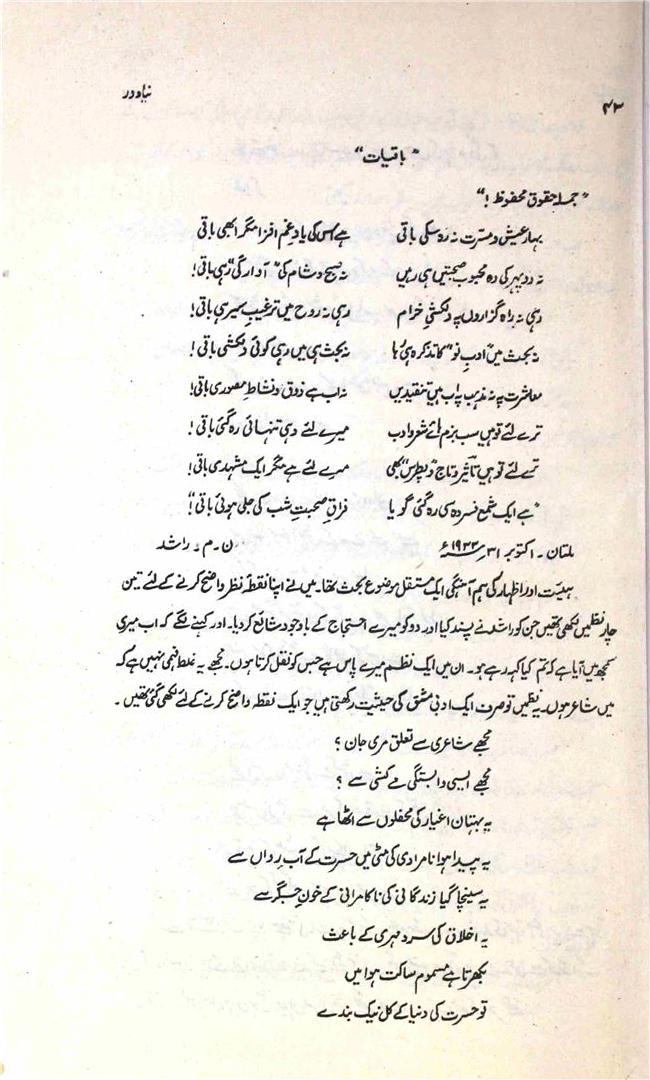 ۴۲
نیا دور
"باقیات"
"جملہ حقوق محفوظ!"
بہارِ عیش و مسرت نہ رہ سکی باقی ہے کس کی یادِ غم افزا مگر ابھی باقی
نہ دوپہر کی وہ محبوب صحبتیں ہی رہیں نہ صبح و شام کی "آوارگی" رہی باقی!
رہی نہ راہ گزاروں پہ دلکشیِ خرام رہی نہ روح میں ترغیبِ سیر ہی باقی!
نہ بحث میں "ادبِ نو" کا تذکرہ ہی رہا نہ بحث ہی میں رہی کوئی دلکشی باقی!
معاشرت پہ نہ مذہب پہ اب ہیں تنقیدیں نہ اب ہے ذوق و نشاطِ مصوری باقی!
ترے لئے تو ہیں سب بزم ہائے شعر و ادب میرے لئے وہی تنہائی رہ گئی باقی!
ترے لئے تو ہیں تاثیر و تاج و "پطرس" بھی مرے لئے ہے مگر ایک مشہدی باقی!
"ہے ایک شمع فسردہ سی رہ گئی گویا فراقِ صحبتِ شب کی جلی ہوئی باقی!"
ملتان۔ اکتوبر ۳۱؍ ۱۹۳۳ء ن۔ م۔ راشد
ہیئت اور اظہار کی ہم آہنگی ایک مستقل موضوع بحث تھا۔ میں نے اپنا نقطۂ نظر واضح کرنے کے لئے تین
چار نظمیں لکھی تھیں جن کو راشد نے پسند کیا اور دو کو میرے احتجاج کے باوجود شائع کر دیا۔ اور کہنے لگے کہ اب میری
سمجھ میں آیا ہے کہ تم کیا کہہ رہے ہو۔ ان میں ایک نظم میرے پاس ہے جس کو نقل کرتا ہوں۔ مجھے یہ غلط فہمی نہیں ہے کہ
میں شاعر ہوں۔ یہ نظمیں تو صرف ایک ادبی مشق کی حیثیت رکھتی ہیں جو ایک نقطہ واضح کرنے کے لئے لکھی گئی تھیں۔
مجھے شاعری سے تعلق مری جان؟
مجھے ایسی وابستگی مے کشی سے؟
یہ بہتان اغیار کی محفلوں سے اٹھا ہے
یہ پیدا ہوا نامرادی کی مٹی میں حسرت کے آبِ رواں سے
یہ سینچا گیا زندگانی کی ناکامرانی کے خونِ جگر سے
یہ اخلاق کی سرد مہری کے باعث
بکھرتا ہے مسموم ساکت ہوا میں
تو حسرت کی دنیا کے کل نیک بندے